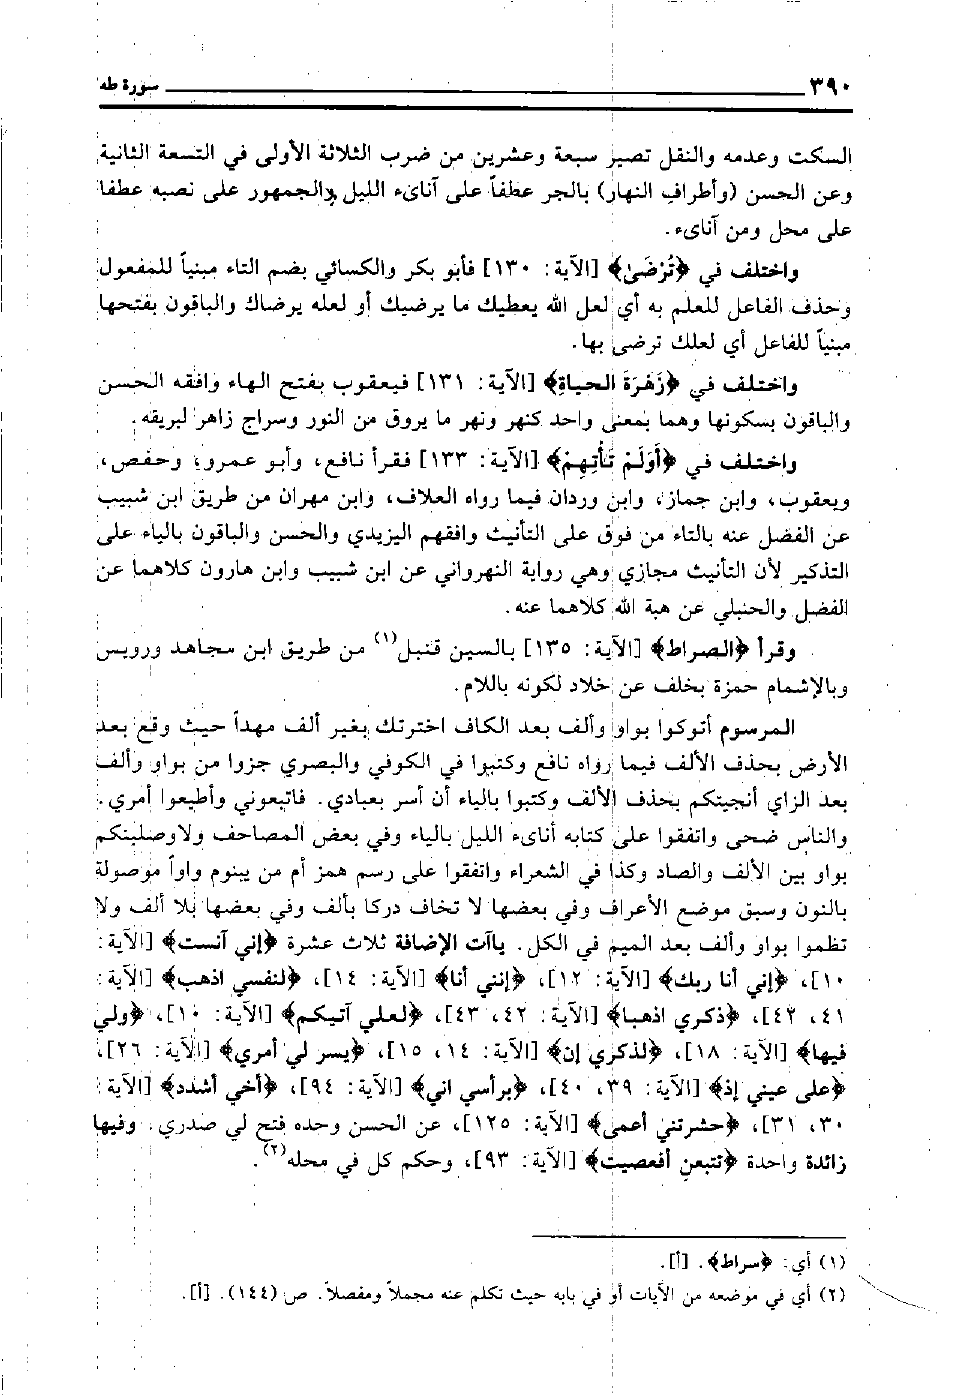 ٣٩٠ سورة طه
السكت وعدمه والنقل تصير سبعة وعشرين من ضرب الثلاثة الأولى في التسعة الثانية
وعن الحسن (وأطرافِ النهار) بالجر عطفاً على آناىء الليل والجمهور على نصبه عطفاً
على محل ومن آناىء.
واختلف في ﴿تُرْضَىٰ﴾ [الآية: ١٣٠] فأبو بكر والكسائي بضم التاء مبنياً للمفعول
وحذف الفاعل للعلم به أي لعل الله يعطيك ما يرضيك أو لعله يرضاك والباقون بفتحها
مبنياً للفاعل أي لعلك ترضى بها.
واختلف في ﴿زَهَرَةَ الحياةِ﴾ [الآية: ١٣١] فيعقوب بفتح الهاء وافقه الحسن
والباقون بسكونها وهما بمعنى واحد كنهر ونهر ما يروق من النور وسراج زاهر لبريقه.
واختلف في ﴿أَوَلَمْ تَأْتِهِمْ﴾ [الآية: ١٣٣] فقرأ نافع، وأبو عمرو، وحفص،
ويعقوب، وابن جماز، وابن وردان فيما رواه العلاف، وابن مهران من طريق ابن شبيب
عن الفضل عنه بالتاء من فوق على التأنيث وافقهم اليزيدي والحسن والباقون بالياء على
التذكير لأن التأنيث مجازي وهي رواية النهرواني عن ابن شبيب وابن هارون كلاهما عن
الفضل والحنبلي عن هبة الله كلاهما عنه.
وقرأ ﴿الصراط﴾ [الآية: ١٣٥] بالسين قنبل(١) من طريق ابن مجاهد ورويس
وبالإشمام حمزة بخلف عن خلاد لكونه باللام.
المرسوم أتوكوا بواو وألف بعد الكاف اخترتك بغير ألف مهداً حيث وقع بعد
الأرض بحذف الألف فيما رواه نافع وكتبوا في الكوفي والبصري جزوا من بواو وألف
بعد الزاي أنجيتكم بحذف الألف وكتبوا بالياء أن أسر بعبادي. فاتبعوني وأطيعوا أمري.
والناس ضحى واتفقوا على كتابه أناىء الليل بالياء وفي بعض المصاحف ولاوصلبنكم
بواو بين الألف والصاد وكذا في الشعراء واتفقوا على رسم همز أم من يبنوم واواً موصولة
بالنون وسبق موضع الأعراف وفي بعضها لا تخاف دركا بألف وفي بعضها بلا ألف ولا
تظموا بواو وألف بعد الميم في الكل. ياآت الإضافة ثلاث عشرة ﴿إني آنست﴾ [الآية:
١٠]، ﴿إني أنا ربك﴾ [الآية: ١٢]، ﴿إنني أنا﴾ [الآية: ١٤]، ﴿لنفسي اذهب﴾ [الآية:
٤١، ٤٢]، ﴿ذكري اذهبا﴾ [الآية: ٤٢، ٤٣]، ﴿لعلي آتيكم﴾ [الآية: ١٠]، ﴿ولي
فيها﴾ [الآية: ١٨]، ﴿لذكري إن﴾ [الآية: ١٤، ١٥]، ﴿يسر لي أمري﴾ [الآية: ٢٦]،
﴿على عيني إذ﴾ [الآية: ٣٩، ٤٠]، ﴿برأسي اني﴾ [الآية: ٩٤]، ﴿أخي أشدد﴾ [الآية:
٣٠، ٣١]، ﴿حشرتني أعمى﴾ [الآية: ١٢٥]، عن الحسن وحده فتح لي صدري. وفيها
زائدة واحدة ﴿تتبعن أفعصيت﴾ [الآية: ٩٣]، وحكم كل في محله(٢).
(١) أي: ﴿سراط﴾. [أ].
(٢) أي في موضعه من الآيات أو في بابه حيث تكلم عنه مجملاً ومفصلاً. ص (١٤٤). [أ].